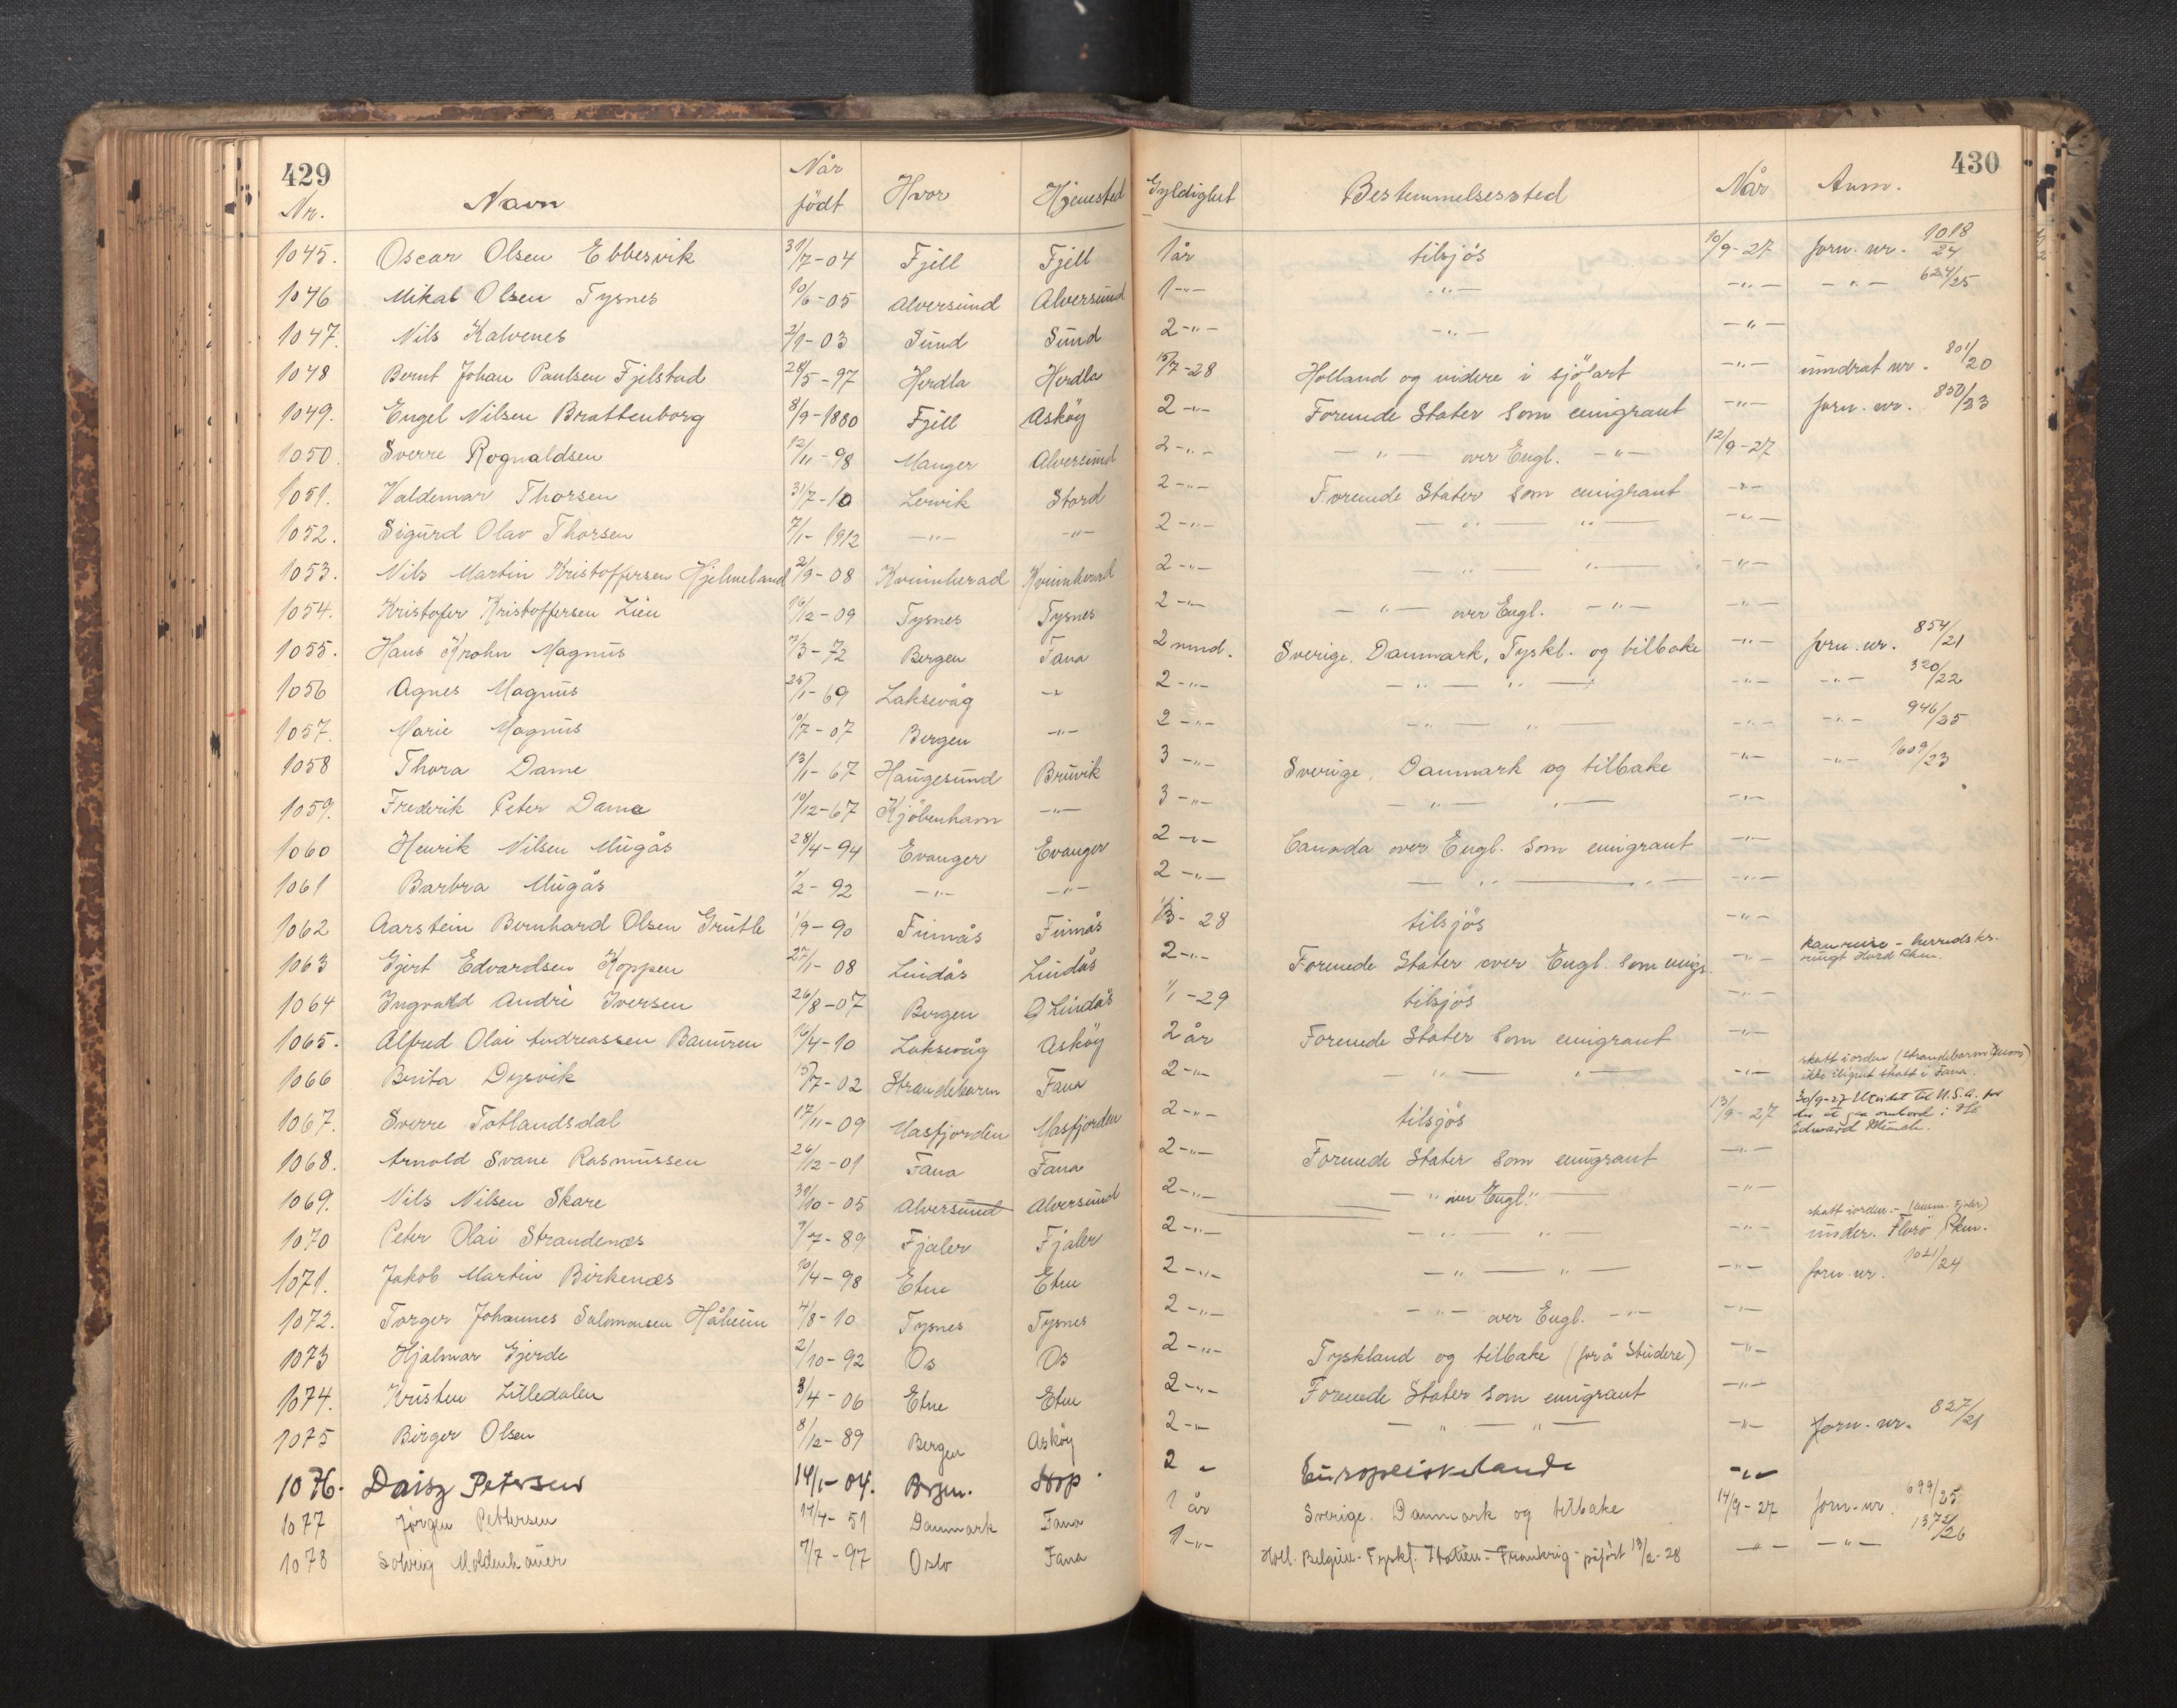 429 430
Nr. Navn Når födt Hvor Hjemsted Gyldighet Bestemmelsessted Når Anm.
1045. Oscar Olsen Ebbesvik 31/7-04 Fjell Fjell 1 år tilsjös 10/9-27 forn. nr. 1018/24
1046 Mikal Olsen Tysnes 10/6-05 Alversund Alversund 1 -"- -"- -"- -"- 624/25
1047. Nils Kalvenes 2/1-03 Sund Sund 2 -"- -"- -"-
1048 Bernt Johan Paulsen Fjelstad 28/5-97 Herdla Herdla 15/7-28 Holland og videre i sjöfart -"- inndrat nr. 801/20
1049. Engel Nilsen Brattenborg 8/9-1880 Fjell Asköy 2 -"- Forenede Stater som emigrant -"- forn. nr. 850/23
1050. Sverre Rognaldsen 12/11-98 Manger Alversund 2 -"- -"- over Engl. -"- 12/9-27
1051. Valdemar Thorsen 31/7-10 Lervik Stord 2 -"- Forenede Stater som emigrant -"-
1052. Sigurd Olav Thorsen 7/1-1912 -"- -"- 2 -"- -"- -"- -"-
1053. Nils Martin Kristoffersen Hjelmeland 2/9-08 Kvinnherad Kvinnherad 2 -"- -"- -"- -"-
1054. Kristofer Kristoffersen Lien 16/2-09 Tysnes Tysnes 2 -"- -"- over Engl. -"- -"-
1055. Hans Krohn Magnus 7/3-72 Bergen Fana 2 mnd. Sverige, Danmark, Tyskl. og tilbake -"- forn. nr. 854/21
1056 Agnes Magnus 25/1-69 Laksevåg -"- 2 -"- -"- -"- -"- -"- 320/22
1057. Marie Magnus 10/7-07 Bergen -"- 2 -"- -"- -"- -"- -"- 946/25
1058 Thora Dame 13/1-67 Haugesund Bruvik 3 -"- Sverige, Danmark og tilbake -"- -"- 1609/23
1059. Frederik Peter Dame 10/12-67 Kjöbenhavn -"- 3 -"- -"- -"- -"-
1060 Henrik Nilsen Mugås 28/4-94 Evanger Evanger 2 -"- Canada over Engl. som emigrant -"-
1061 Barbra Mugås 1/2-92 -"- -"- 2 -"- -"- -"- -"-
1062 Aarstein Bernhard Olsen Grutle 1/9-90 Finnås Finnås 1/3-28 tilsjös -"-
1063 Gjert Edvardsen Koppen 27/1-08 Lindås Lindås 2 -"- Forenede Stater over Engl. som emigr. -"- kan reise - herredskr.
1064 Ingvald Andrè Iversen 26/8-07 Bergen Lindås 1/1-29 tilsjös -"-
1065. Alfred Olai Andreassen 16/4-10 Laksevåg Asköy 2 år Forenede Stater som emigrant -"-
1066 Brita Dysvik 15/7-02 Strandebarm Fana 2 -"- -"- -"- -"- skatt i orden (Strandebarm) ikke ilignet skatt i Fana.
1067. Sverre Totlandsdal 17/11-09 Masfjorden Masfjorden 2 -"- tilsjös 13/9-27 30/9-27 Utvidet til U.S.A. for der at gaa ombord i Edvard Munch.
1068. Arnold Svane Rasmussen 26/12-01 Fana Fana 2 -"- Forenede Stater som emigrant -"-
1069. Nils Nilsen Skare 31/10-05 Alversund Alversund 2 -"- -"- over Engl. -"- -"-
1070 Peter Olai Strandenæs 7/7-89 Fjaler Fjaler 2 -"- -"- -"- -"- skatt i orden. - (anm. Fjaler) under. Florö Pkm.
1071. Jakob Martin Birkenæs 10/4-98 Etne Etne 2 -"- -"- -"- -"- forn. nr. 1021/24
1072. Torger Johannes Salomonsen Håheim 4/8-10 Tysnes Tysnes 2 -"- -"- over Engl. -"- -"-
1073 Hjalmar Gjerde 2/10-92 Os Os 2 -"- Tyskland og tilbake (for å studere) -"-
1074. Kristen Litledalen 8/4-06 Etne Etne 2 -"- Forenede Stater som emigrant -"-
1075 Birger Olsen 8/12-89 Bergen Asköy 2 -"- -"- -"- -"- forn. nr. 827/21
1076. Daisy Petersen 14/1-04. Bergen. Hop. 2 " Europeiske lande -"-
1077 Jørgen Pettersen 14/4-51 Danmark Fana 1 år Sverige. Danmark og tilbake 14/9-27 forn. nr. 699/25
1078 Solveig Moldenhauer 7/7-97 Oslo Fana 1 -"- Holl. Belgien - Tyskl. Italien - Frankrig - påfört 13/2-28 -"- -"- 1372/26